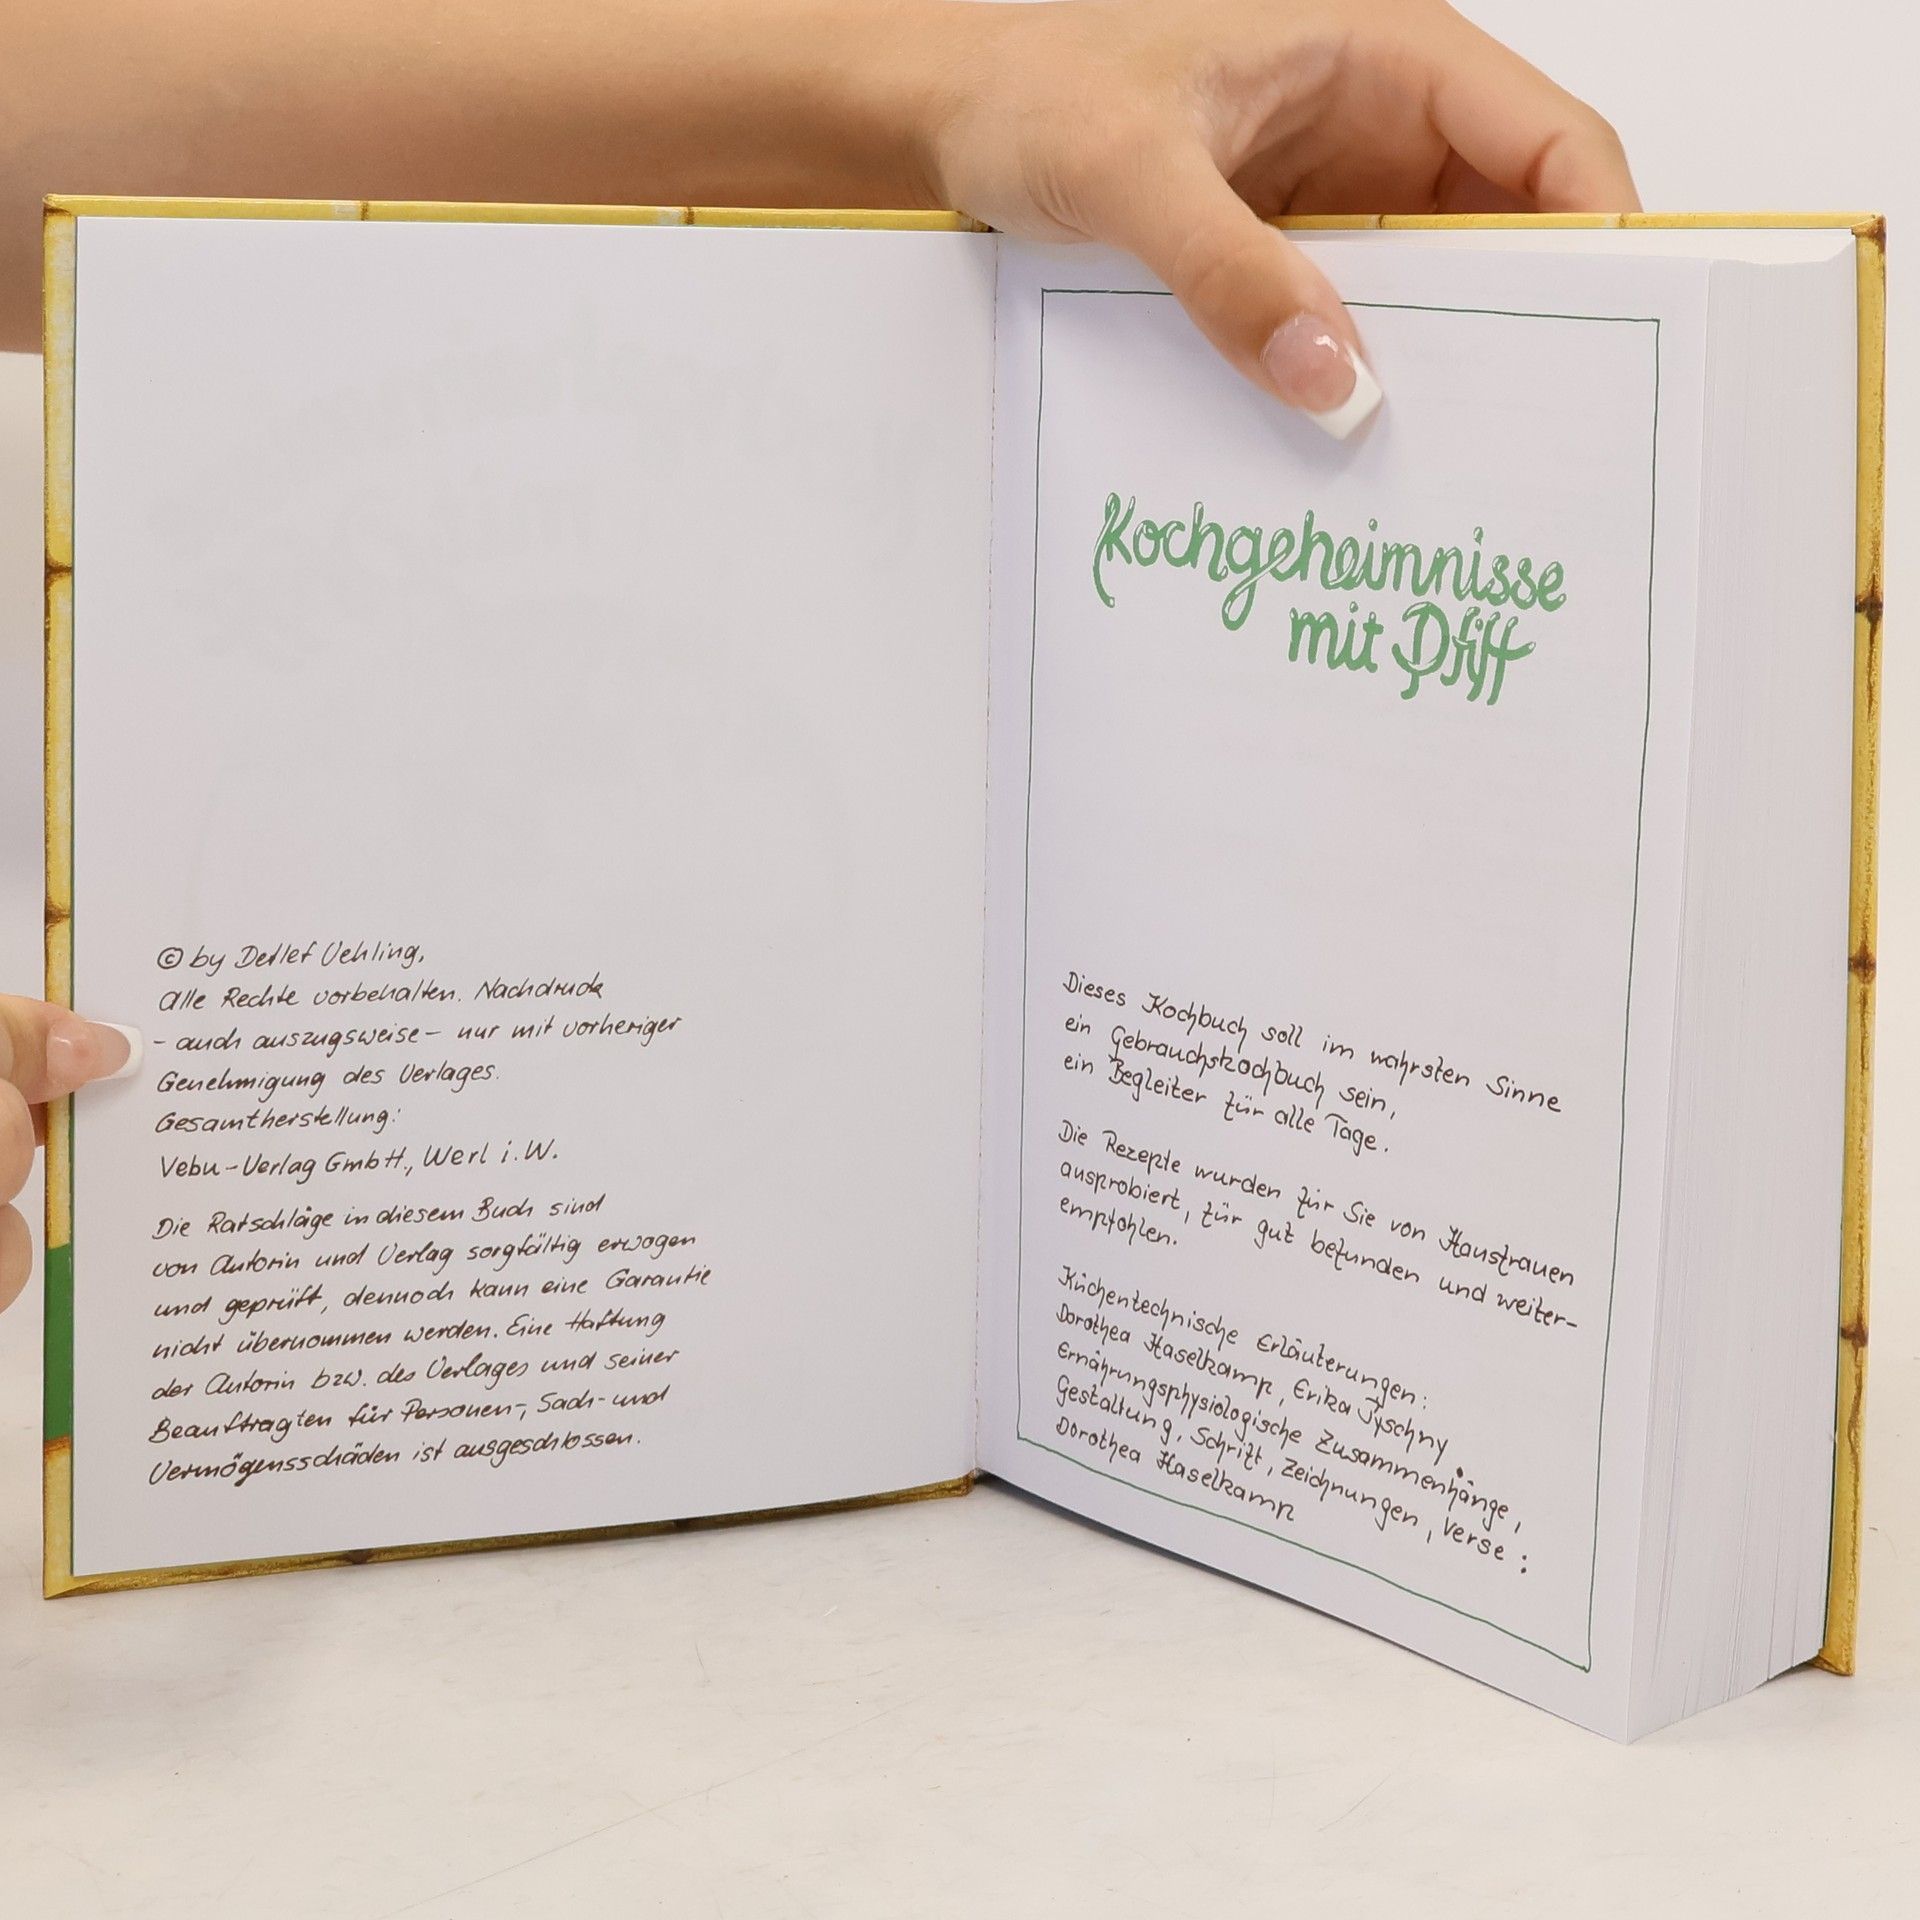 © by Detlef Uehling,
Alle Rechte vorbehalten. Nachdruck
- auch auszugsweise - nur mit vorheriger
Genehmigung des Verlages.
Gesamtherstellung:
Vebu-Verlag GmbH., Werl i.W.
Die Ratschläge in diesem Buch sind
von Autorin und Verlag sorgfältig erwogen
und geprüft, dennoch kann eine Garantie
nicht übernommen werden. Eine Haftung
der Autorin bzw. des Verlages und seiner
Beauftragten für Personen-, Sach- und
Vermögensschäden ist ausgeschlossen.
Kochgeheimnisse
mit Pfiff
Dieses Kochbuch soll im wahrsten Sinne
ein Gebrauchskochbuch sein,
ein Begleiter für alle Tage.
Die Rezepte wurden für Sie von Hausfrauen
ausprobiert, für gut befunden und weiter-
empfohlen.
Küchentechnische Erläuterungen:
Dorothea Haselkamp, Erika Tyschny.
Ernährungsphysiologische Zusammenhänge,
Gestaltung, Schrift, Zeichnungen, Verse:
Dorothea Haselkamp